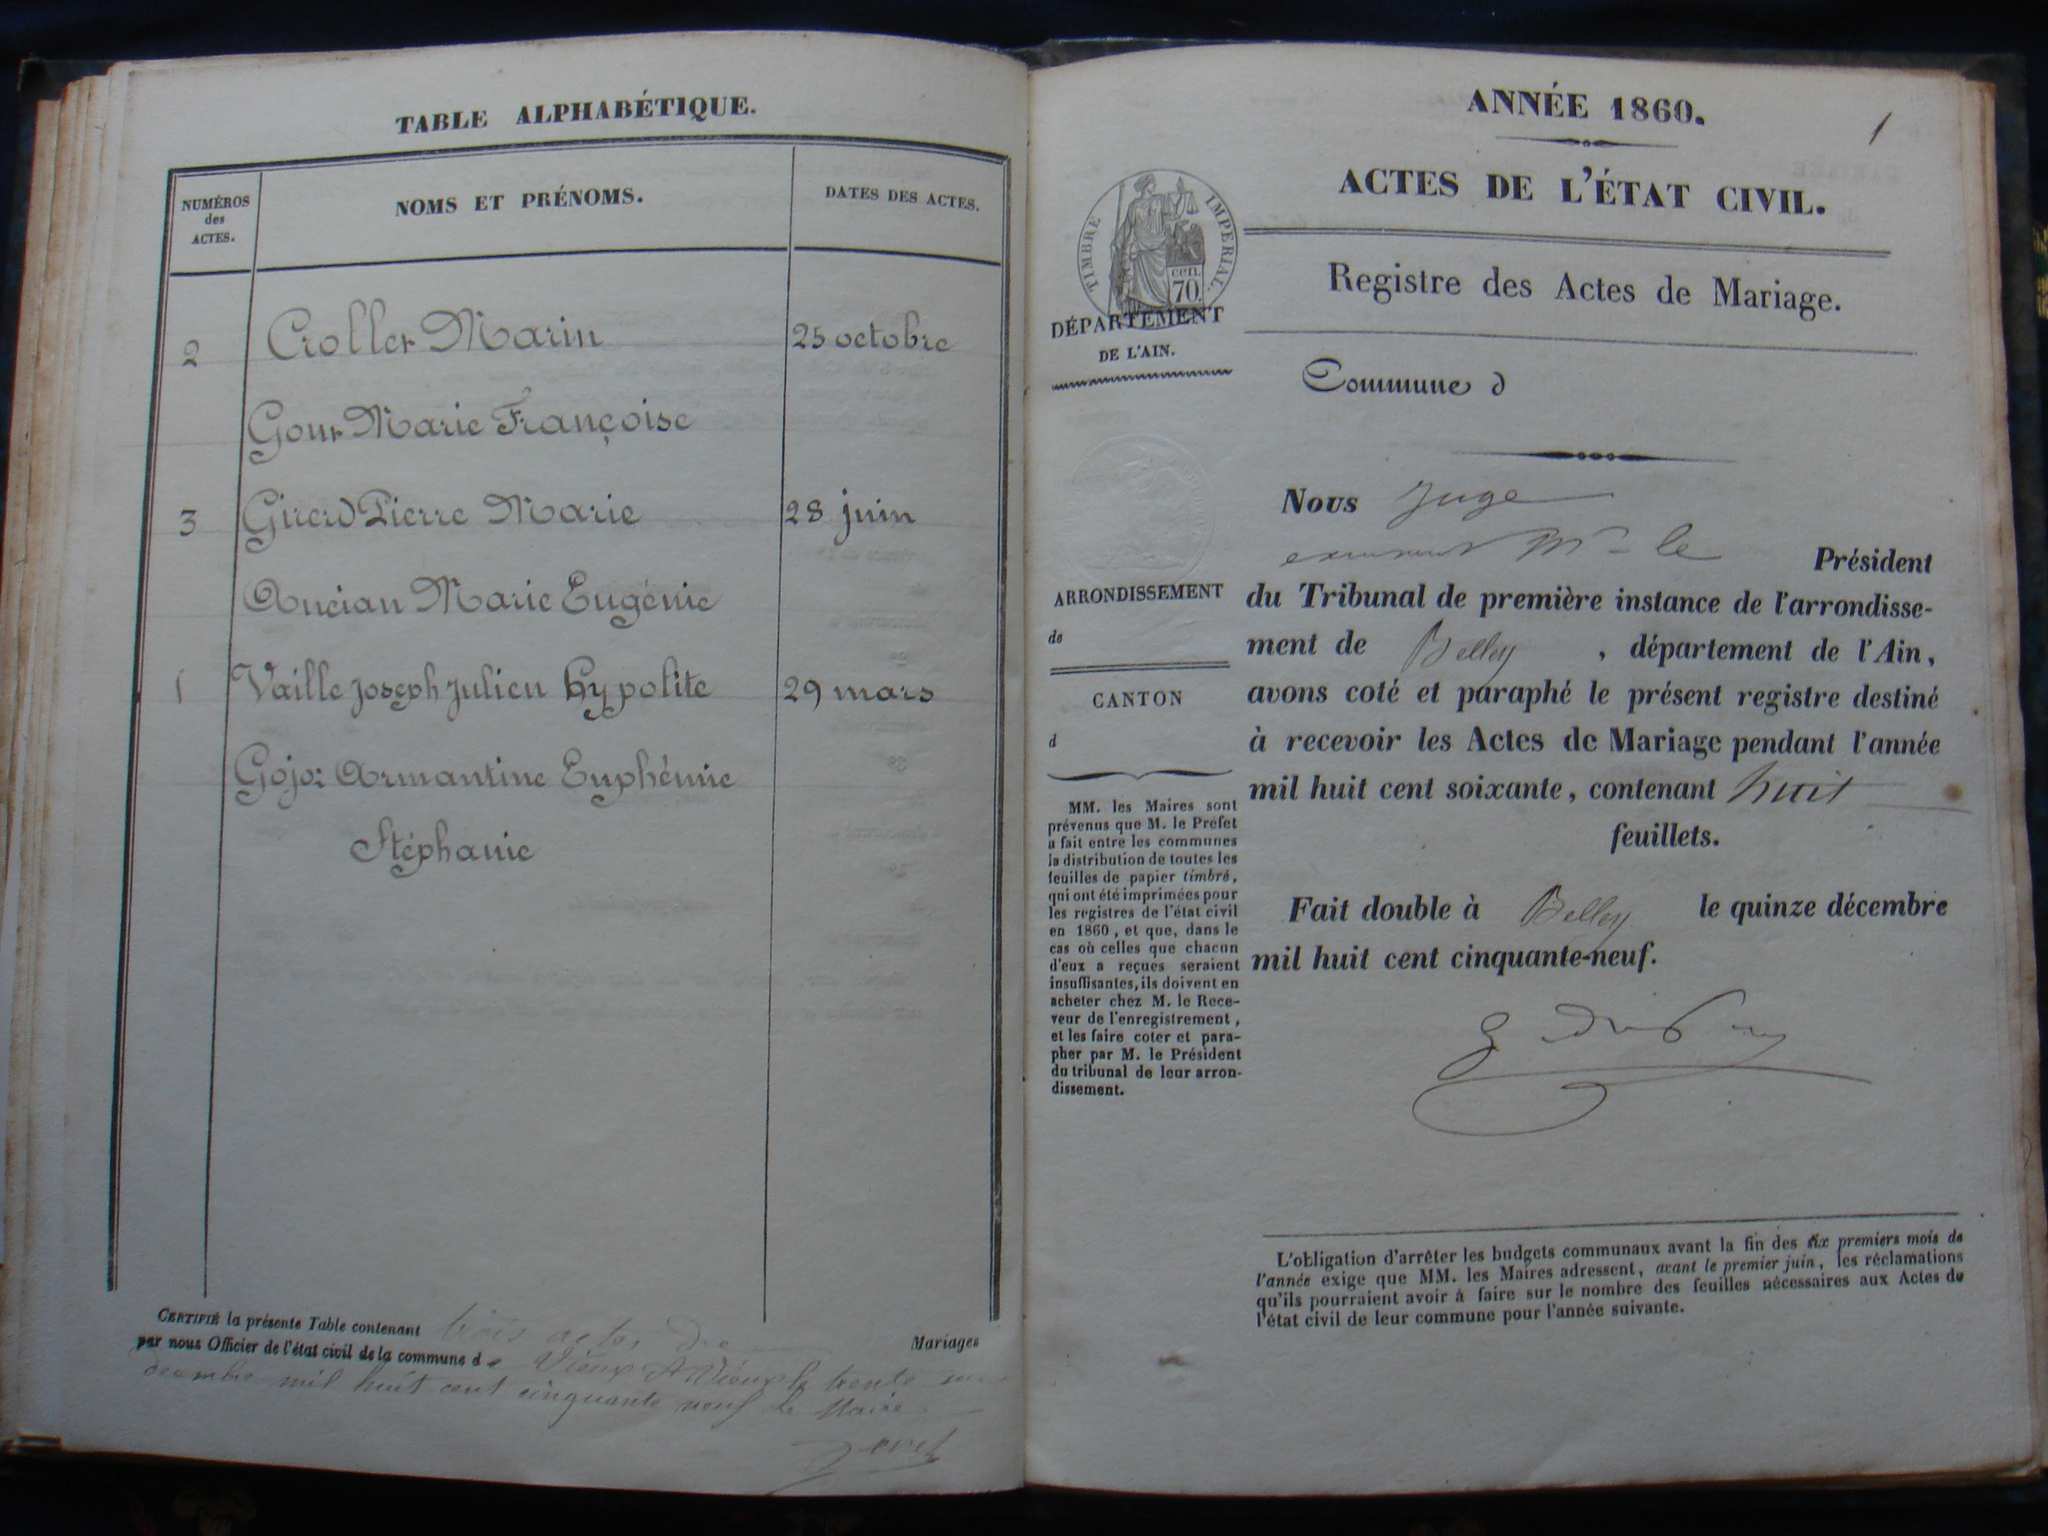 TABLE ALPHABÉTIQUE.
NUMÉROS
des
ACTES.
NOMS ET PRÉNOMS.
DATES DES ACTES.
2 Crollet Marin 25 octobre
Gour Marie Françoise
3 Girerd Pierre Marie 28 juin
Ancian Marie Eugénie
1 Vaille Joseph Julien Hypolite 29 mars
Gojoz Armantine Euphémie
Stéphanie
CERTIFIÉ la présente Table contenant trois actes de Mariages
par nous Officier de l'état civil de la commune d e Vieux d'Vieux le trente un
décembre mil huit cent cinquante neuf Le Maire
ANNÉE 1860.
1
ACTES DE L'ÉTAT CIVIL.
Registre des Actes de Mariage.
TIMBRE IMPERIAL.
CEN.
70.
DÉPARTEMENT
DE L'AIN.
Commune d
ARRONDISSEMENT
de
CANTON
d
MM. les Maires sont
prévenus que M. le Préfet
a fait entre les communes
la distribution de toutes les
feuilles de papier timbré,
qui ont été imprimées pour
les registres de l'état civil
en 1860, et que, dans le
cas où celles que chacun
d'eux a reçues seraient
insuffisantes, ils doivent en
acheter chez M. le Rece-
veur de l'enregistrement,
et les faire coter et para-
pher par M. le Président
du tribunal de leur arron-
dissement.
Nous Juge
M. le Président
du Tribunal de première instance de l'arrondisse-
ment de Belley, département de l'Ain,
avons coté et paraphé le présent registre destiné
à recevoir les Actes de Mariage pendant l'année
mil huit cent soixante, contenant huit
feuillets.
Fait double à Belley le quinze décembre
mil huit cent cinquante-neuf.
L'obligation d'arrêter les budgets communaux avant la fin des six premiers mois de
l'année exige que MM. les Maires adressent, avant le premier juin, les réclamations
qu'ils pourraient avoir à faire sur le nombre des feuilles nécessaires aux Actes de
l'état civil de leur commune pour l'année suivante.